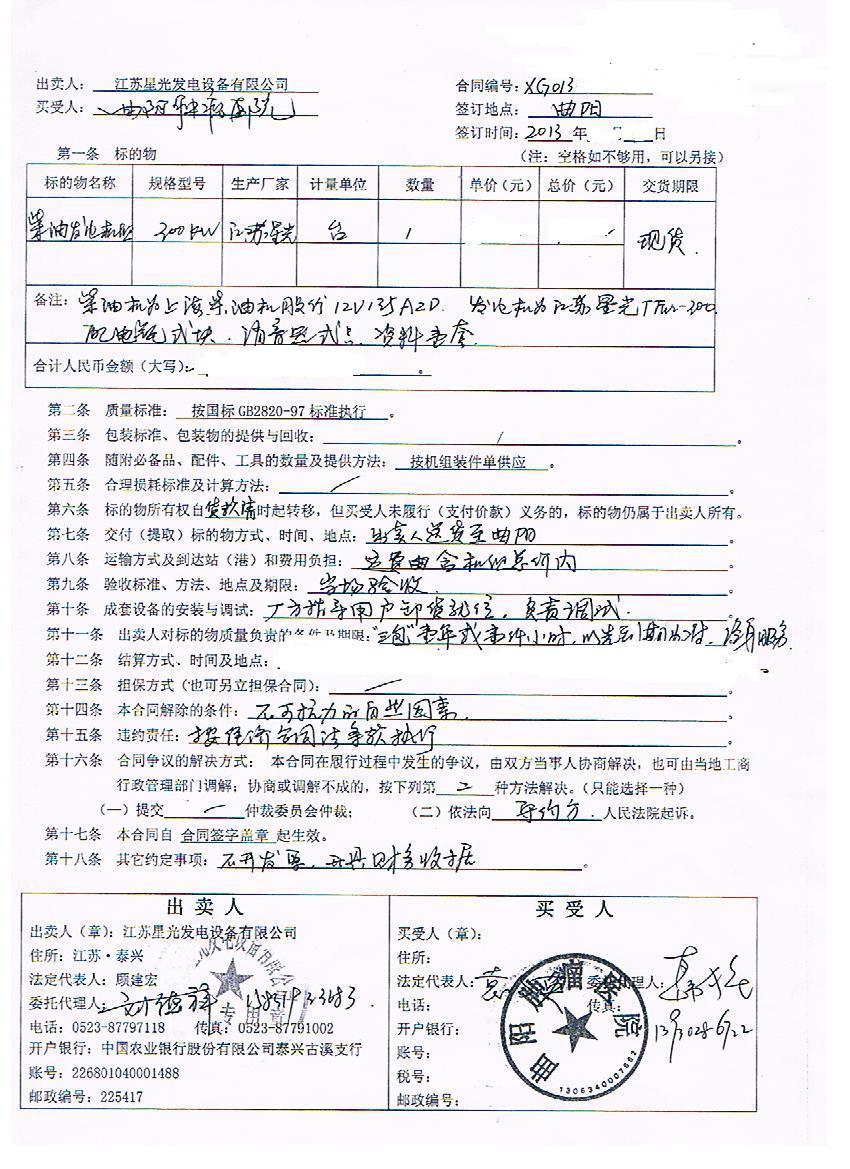 出卖人： 江苏星光发电设备有限公司 合同编号：XG013
买受人：曲阳肿瘤医院 签订地点： 曲阳
签订时间：2013 年 日
第一条 标的物 （注：空格如不够用，可以另接）
标的物名称 规格型号 生产厂家 计量单位 数量 单价（元） 总价（元） 交货期限
柴油发电机组 300KW 江苏星光 台 1 现货.
备注：柴油机为上海柴油机股份12V135AZD. 发电机为江苏星光TFW-300.
配电瓶 块. 消音器 . 资料壹套.
合计人民币金额（大写）： 。
第二条 质量标准： 按国标 GB2820-97 标准执行 。
第三条 包装标准、包装物的提供与回收： / 。
第四条 随附必备品、配件、工具的数量及提供方法： 按机组装件单供应 。
第五条 合理损耗标准及计算方法： / 。
第六条 标的物所有权自货款清时起转移，但买受人未履行（支付价款）义务的，标的物仍属于出卖人所有。
第七条 交付（提取）标的物方式、时间、地点：出卖人送货至曲阳 。
第八条 运输方式及到达站（港）和费用负担： 运费 含 总价内 。
第九条 验收标准、方法、地点及期限： 当场验收. 。
第十条 成套设备的安装与调试：厂方指导用户卸货就位，负责调试. 。
第十一条 出卖人对标的物质量负责的条件及期限："三包"壹年或壹仟小时，以先到期为 ，终身服务.
第十二条 结算方式、时间及地点：
第十三条 担保方式（也可另立担保合同）： / 。
第十四条 本合同解除的条件： 不可抗力的自然因素. 。
第十五条 违约责任： 按经济合同法条款执行 。
第十六条 合同争议的解决方式： 本合同在履行过程中发生的争议，由双方当事人协商解决，也可由当地工商
行政管理部门调解；协商或调解不成的，按下列第 二 种方法解决。（只能选择一种）
（一）提交 / 仲裁委员会仲裁； （二）依法向 守约方. 人民法院起诉。
第十七条 本合同自 合同签字盖章 起生效。
第十八条 其它约定事项： 不开发票，开具财务收据 。
出卖人 买受人
出卖人（章）：江苏星光发电设备有限公司 买受人（章）：
住所：江苏·泰兴 住所：
法定代表人：顾建宏 法定代表人： 委托代理人：
委托代理人： 德祥 电话： 传真：
电话：0523-87797118 传真：0523-87791002 开户银行：
开户银行：中国农业银行股份有限公司泰兴古溪支行 账号：
账号：226801040001488 税号：
邮政编号：225417 邮政编号：
专用章
曲阳肿瘤医院
1306340007662